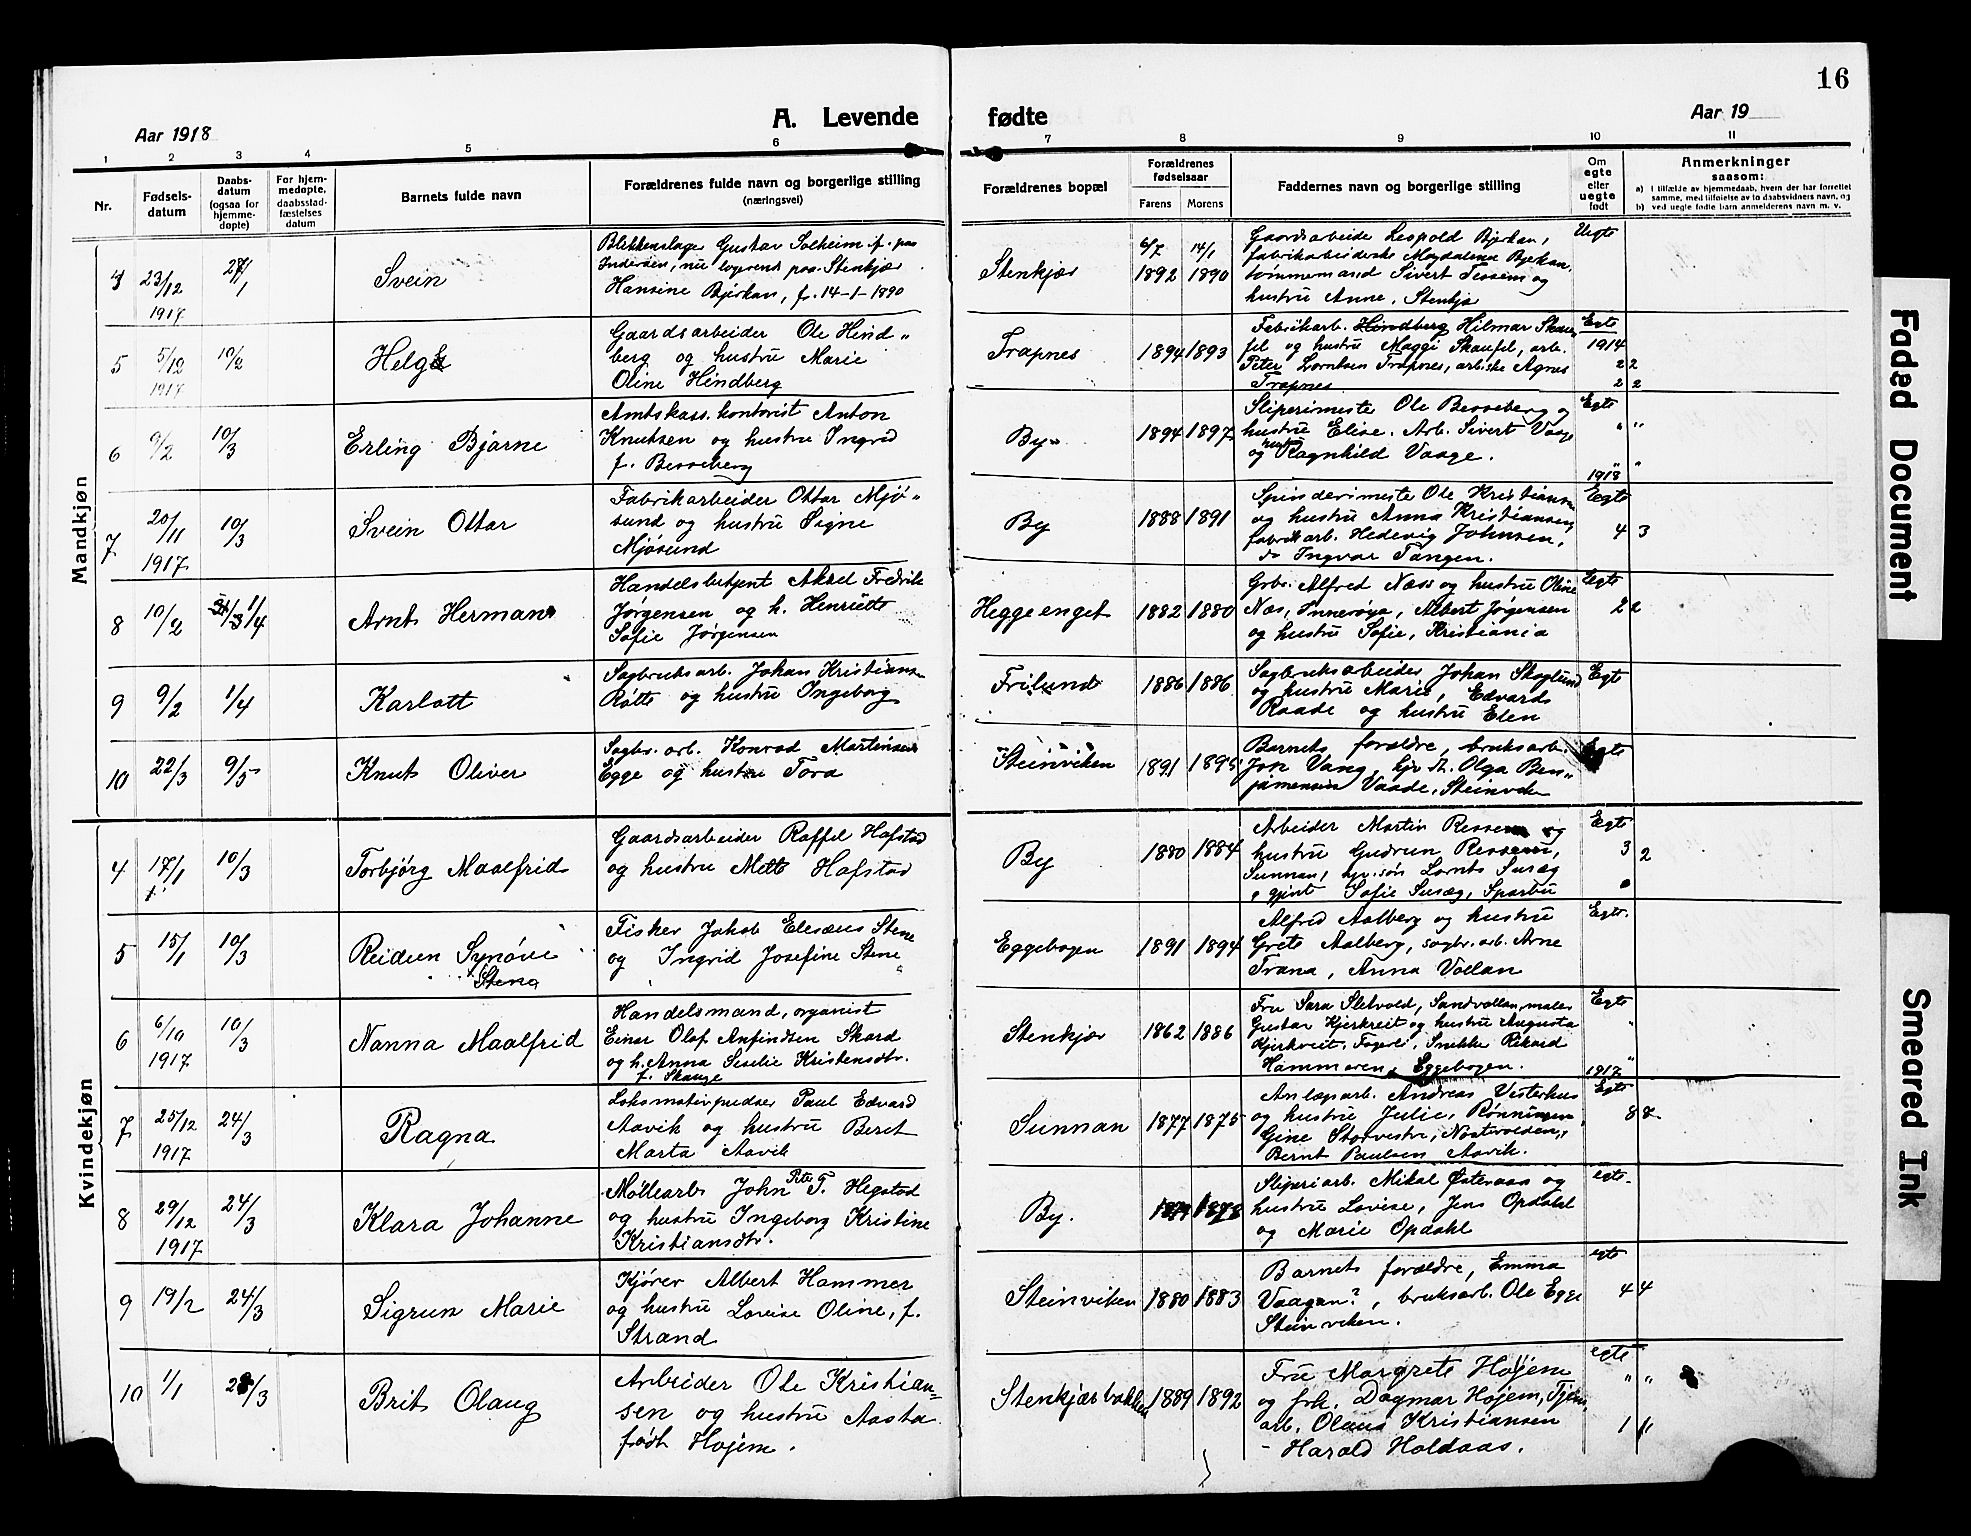 16
Aar 1918
A. Levende
fødte
Aar 19
1 2 3 4 5 6 7 8 9 10 11
Nr.
Fødsels-
datum
Daabs-
datum
(ogsaa for
hjemme-
døpte)
For hjem-
medøpte,
daabsstad-
fæstelses
datum
Barnets fulde navn
Forældrenes fulde navn og borgerlige stilling
(næringsvei)
Forældrenes bopæl
Forældrenes
fødselsaar
Farens
Morens
Faddernes navn og borgerlige stilling
Om
egte
eller
uegte
født
Anmerkninger
saasom:
a) I tilfælde av hjemmedaab, hvem der har forrettet
samme, med tilføielse av to daabsvidners navn, og
b) ved uegte fødte barn anmelderens navn m. v.
Mandkjøn
4
23/12
1917
27/1
Svein
Blikkenslager Gustav Solheim f. paa
Inderøen, nu logerende paa Stenkjær
Hansine Bjerkan, f. 14-1-1890
Stenkjær
6/7
1892
14/1
1890
Gaardsarbeide Leopold Bjerkan,
fabrikarbeiderske Magdalena Bjerkan,
tømmermand Sivert Tessem og
hustru Anne, Stenkjær
Uegte
5
5/12
1917
10/2
Helge
Gaardsarbeider Ole Hind„
berg og hustru Marie
Oline Hindberg
Trapnes
1894
1893
Fabrikarb. Hindberg Hilmar Skau„
fel og hustru Maggi Skaufel, arb.
Peter Lorntsen Trapnes, arb.ske Agnes
Trapnes
Egte
1914
2 2
2 2
6
9/2
10/3
Erling Bjarne
Amtskass. kontorist Anton
Knutsen og hustru Ingrid
f. Besseberg
By
1894
1897
Sliperimester Ole Besseberg og
hustru Elise. Arb. Sivert Vaage
og hustru Ragnhild Vaage.
Egte
" "
" "
1918
7
20/11
1917
10/3
Svein Ottar
Fabrikarbeider Ottar Mjø„
sund og hustru Signe
Mjøsund
By
1888
1891
Spinderimester Ole Kristiansen
og hustru Anna Kristiansen,
fabrikarb. Hedevig Johnsen,
do Ingvar Tangen.
Egte
4 3
8
10/2
31/3 1/4
Arnt Herman
Handelsbetjent Aksel Fredrik
Jørgensen og h. Henriette
Sofie Jørgensen
Heggeenget
1882
1880
Grbr. Alfred Næss og hustru Oline
Næs, Inderøya, Albert Jørgensen
og hustru Sofie, Kristiania
Egte
2 2
9
9/2
1/4
Karlott
Sagbruksarb. Johan Kristiansen
Røtte og hustru Ingeborg
Frilund
1886
1886
Sagbruksarbeider Johan Skoglund
og hustru Marie, Edvard
Raade og hustru Elen
Egt
10
22/3
9/5
Knut Oliver
Sagbr. arb. Konrad Martinsen
Egge og hustru Tora
Steinviken
1891
1895
Barnets forældre, bruksarb.
Jon Vang, Olga Ben„
jamensen Vaade, Steinviken
Egte
Kvindekjøn
4
17/1
10/3
Torbjørg Maalfrid
Gaardsarbeider Roffel Hafstad
og hustru Mette Hafstad
By
1880
1884
Arbeider Martin Ressem og
hustru Gudrun Ressem,
Sunnan, Lornts Susæg
Sofie Susæg, Sparbu
Egte
3 2
5
15/1
10/3
Reidun Synøve
Stene
Fisker Jakob Elesæus Stene
og Ingrid Josefine Stene
Eggebogen
1891
1894
Alfred Aalberg og hustru
Grete Aalberg, sagbr. arb. Arne
Trana, Anna Vollan
Egte.
6
6/10
1917
10/3
Nanna Maalfrid
Handelsmand, organist
Einar Olaf Anfindsen Skard
og h. Anna Sesilie Kristensdtr.
f. Skauge
Stenkjær
1862
1886
Fru Sara Sletvold, Sandvollan, maler
Gustav Kjerkreit og hustru Augusta
Kjerkreit, Fagerli, Snikker Rikard
Hammeren, Eggebogen.
Egte
"
"
1917
7
25/12
1917
24/3
Ragna
Lokomotivpudser Paul Edvard
Aavik og hustru Beret
Marta Aavik
Sunnan
1877
1875
Anlægsarb. Andreas Vesterhus
og hustru Julie, Rønningen,
Gine Storvestre, Nostvolden,
Bernt Paulsen Aavik.
Egte
8 8
8
29/12
1917
24/3
Klara Johanne
Møllearb John Peter T. Hegstad
og hustru Ingeborg Kristine
Kristiansdtr.
By.
1878
Sliperiarb. Mikal Østeraas og
hustru Lovise, Jens Opdahl
og Marie Opdahl
egte.
9
19/2
24/3
Sigrun Marie
Kjører Albert Hammer
og hustru Lovise Oline, f.
Strand
Steinviken
1880
1883
Barnets forældre, Emma
Vaagan?, bruksarb. Ole Egge
Steinviken.
egte
4 4
10
1/1
28/3
Brit Olaug
Arbeider Ole Kristian„
sen og hustru Aasta
født Højem.
Stenkjærbakken
1889
1892
Fru Margrete Højem
og frk. Dagmar Højem, Tjen.
arb. Olaus Kristiansen
- Harald Holdaas.
egte
" "
1 "
Faded Document
Smeared Ink